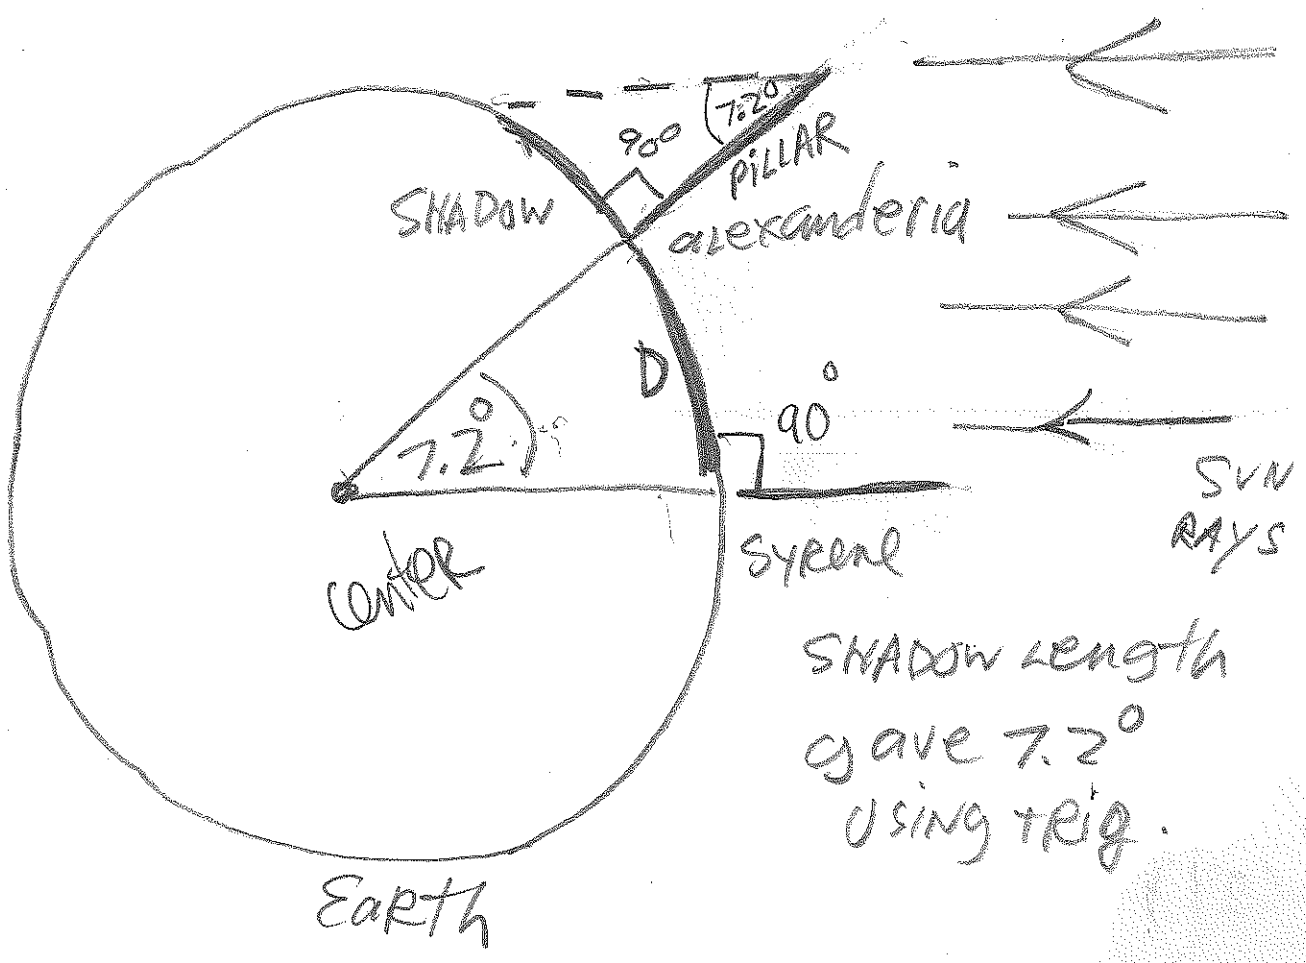 7.2°
90°
PiLLAR
SHADOW
aLexanderia
D
90°
7.2°
SUN
RAYS
center
Syrene
SHADOW Length
gave 7.2°
USiNg tRig.
EaRth